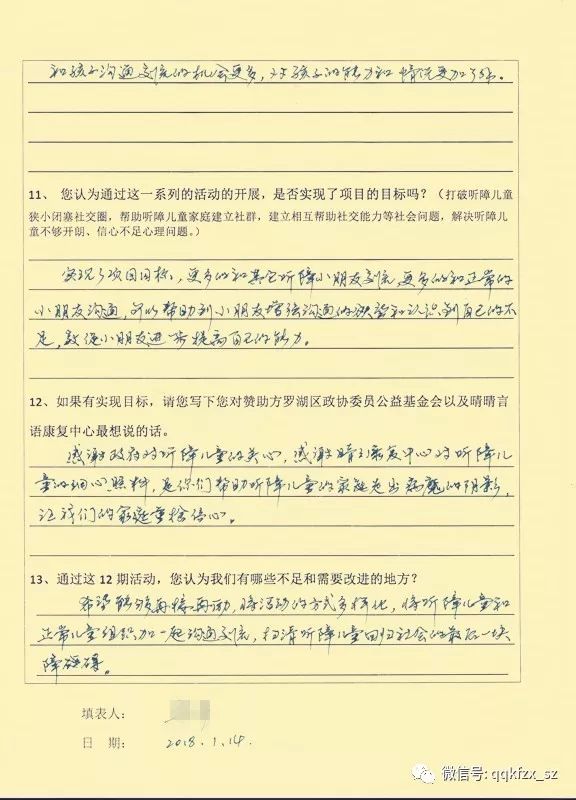 和孩子沟通交流的机会更多，对孩子的能力和情况更加了解。
11、 您认为通过这一系列的活动的开展，是否实现了项目的目标吗？（打破听障儿童
狭小闭塞社交圈，帮助听障儿童家庭建立社群，建立相互帮助社交能力等社会问题，解决听障儿
童不够开朗、信心不足心理问题。）
实现了项目目标，更多的和其它听障小朋友交流，更多的和正常的
小朋友沟通，可以帮助到小朋友增强沟通的欲望和认识到自己的不
足，敦促小朋友进一步提高自己的能力。
12、如果有实现目标，请您写下您对赞助方罗湖区政协委员公益基金会以及晴晴言
语康复中心最想说的话。
感谢政府对听障儿童的关心，感谢晴晴康复中心对听障儿
童的细心照料，是你们帮助听障儿童的家庭走出病魔的阴影，
让我们的家庭重拾信心。
13、通过这 12 期活动，您认为我们有哪些不足和需要改进的地方？
希望能够再接再励，将活动的方式多样化，将听障儿童和
正常儿童组织加一起沟通交流，扫清听障儿童回归社会的最后一块
障碍。
填表人：
日 期： 2018.1.14.
微信号: qqkfzx_sz